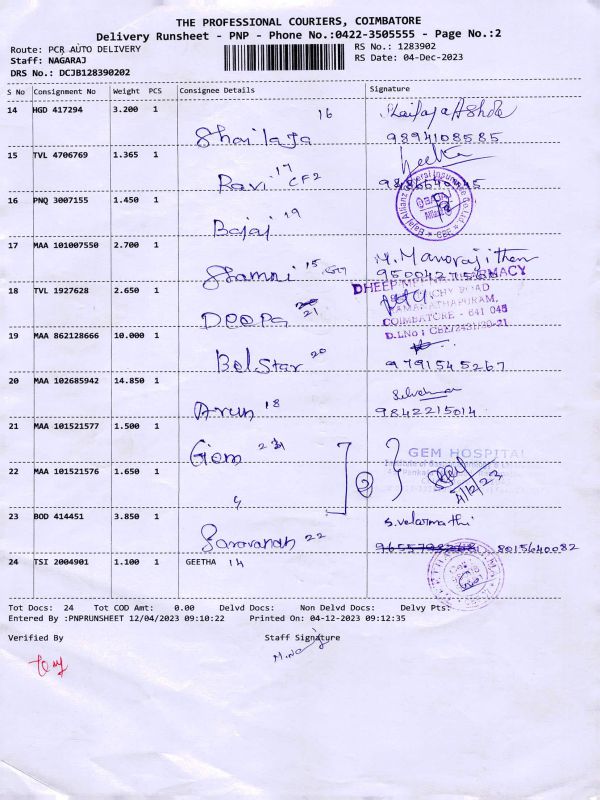 THE PROFESSIONAL COURIERS, COIMBATORE
Delivery Runsheet - PNP - Phone No.:0422-3505555 - Page No.:2
Route: PCR AUTO DELIVERY RS No.: 1283902
Staff: NAGARAJ RS Date: 04-Dec-2023
DRS No.: DCJB128390202
S No Consignment No Weight PCS Consignee Details Signature
14 HGD 417294 3.200 1 Shailaja 16
9894108585
15 TVL 4706769 1.365 1 Ravi 17 CF2
16 PNQ 3007155 1.450 1 Bajaj 19
17 MAA 101007550 2.700 1 15 M. Manorajithen
18 TVL 1927628 2.650 1 Deepa 21
COIMBATORE - 641 045
19 MAA 862128666 10.000 1 BelStar 20
9791545267
20 MAA 102685942 14.850 1 Arun 18
9842215014
21 MAA 101521577 1.500 1 Gem
GEM HOSPITAL
22 MAA 101521576 1.650 1 4/12/23
23 BOD 414451 3.850 1 Saravanan 22 S. Velarmathi
8015640082
24 TSI 2004901 1.100 1 GEETHA 14
Tot Docs: 24 Tot COD Amt: 0.00 Delvd Docs: Non Delvd Docs: Delvy Pts:
Entered By :PNPRUNSHEET 12/04/2023 09:10:22 Printed On: 04-12-2023 09:12:35
Verified By Staff Signature